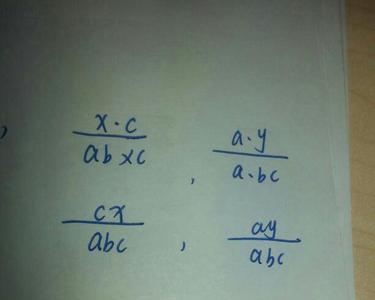 , x·c/ab×c , a·y/a·bc
cx/abc , ay/abc